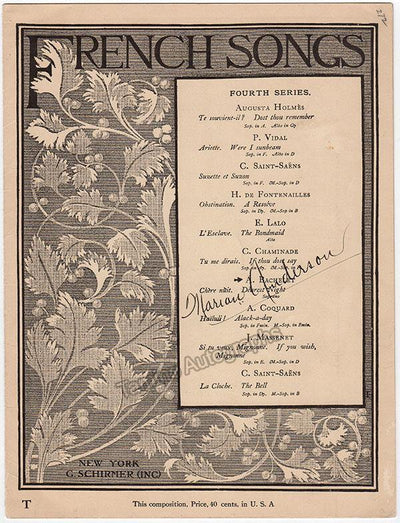 272
FRENCH SONGS
FOURTH SERIES.
AUGUSTA HOLMÈS
Te souvient-il? Dost thou remember
Sop. in A. Alto in G♭
P. VIDAL
Ariette. Were I sunbeam
Sop. in F. Alto in D
C. SAINT-SAËNS
Suzette et Suzon
Sop. in F. M.-Sop. in D
H. DE FONTENAILLES
Obstination. A Resolve
Sop. in D♭. M.-Sop. in B
E. LALO
L'Esclave. The Bondmaid
Alto
C. CHAMINADE
Tu me dirais. If thou dost say
Marian Anderson
A. BACHELET
Chère nuit. Dearest Night
Soprano
A. COQUARD
Haïluli! Alack-a-day
Sop. in F min. M.-Sop. in E min.
J. MASSENET
Si tu veux, Mignonne. If you wish,
Mignonne
Sop. in E. M.-Sop. in D
C. SAINT-SAËNS
La Cloche. The Bell
Sop. in D♭. M.-Sop. in B
Autographs
NEW YORK
G. SCHIRMER (INC)
T
This composition. Price, 40 cents, in U. S. A